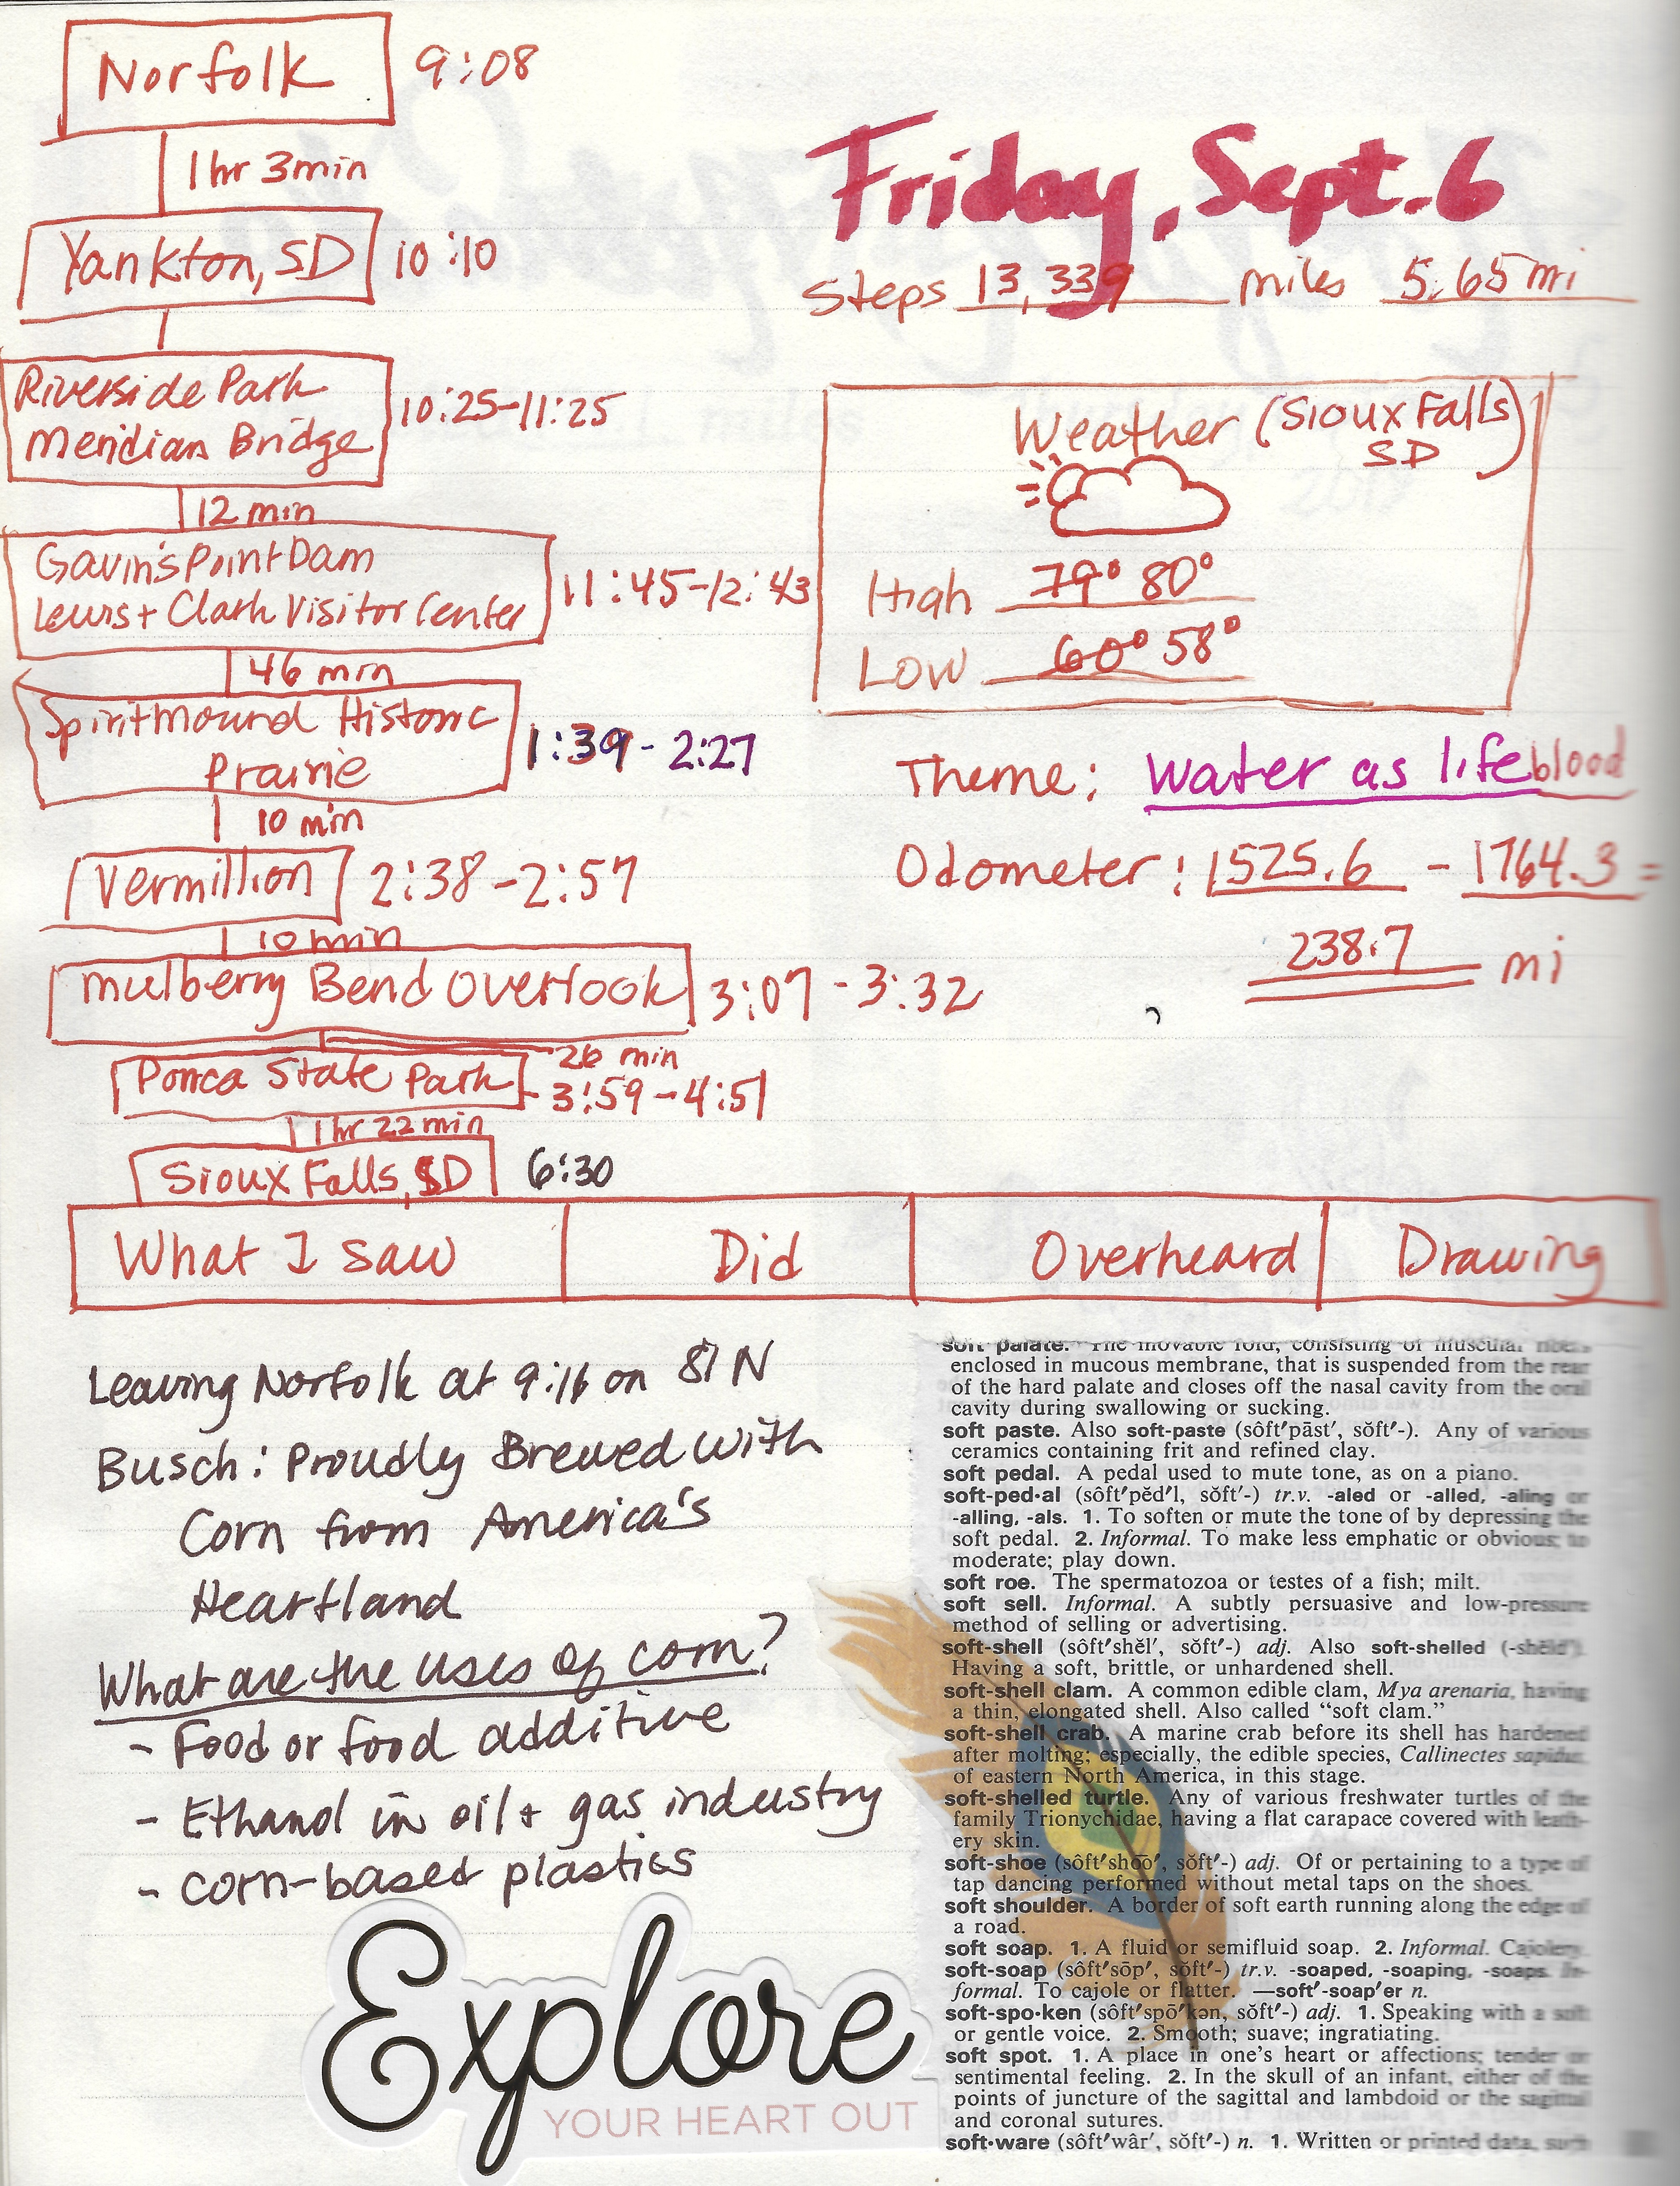 Norfolk 9:08
1hr 3min
Yankton, SD 10:10
Riverside Park
Meridian Bridge
10:25-11:25
12 min
Gavin's Point Dam
Lewis + Clark Visitor Center
11:45-12:43
46 min
Spirit Mound Historic
Prairie
1:39 - 2:27
10 min
Vermillion 2:38-2:57
10 min
Mulberry Bend Overlook 3:07 - 3:32
26 min
Ponca State Park - 3:59-4:51
1hr 22min
Sioux Falls, SD 6:30
Friday, Sept. 6
Steps 13,339 miles 5.65 mi
Weather (Sioux Falls
SD)
High 79° 80°
Low 60° 58°
Theme: Water as lifeblood
Odometer: 1525.6 - 1764.3 =
238.7 mi
What I saw Did Overheard Drawing
Leaving Norfolk at 9:16 on 81 N
Busch: Proudly Brewed with
Corn from America's
Heartland
What are the uses of corn?
- Food or food additive
- Ethanol in oil + gas industry
- corn-based plastics
Explore
YOUR HEART OUT
soft palate. The movable fold, consisting of muscular fibers
enclosed in mucous membrane, that is suspended from the rear
of the hard palate and closes off the nasal cavity from the oral
cavity during swallowing or sucking.
soft paste. Also soft-paste (sôft′pāst′, sŏft′-). Any of various
ceramics containing frit and refined clay.
soft pedal. A pedal used to mute tone, as on a piano.
soft-ped·al (sôft′pĕd′l, sŏft′-) tr.v. -aled or -alled, -aling or
-alling, -als. 1. To soften or mute the tone of by depressing the
soft pedal. 2. Informal. To make less emphatic or obvious; to
moderate; play down.
soft roe. The spermatozoa or testes of a fish; milt.
soft sell. Informal. A subtly persuasive and low-pressure
method of selling or advertising.
soft-shell (sôft′shĕl′, sŏft′-) adj. Also soft-shelled (-shĕld′).
Having a soft, brittle, or unhardened shell.
soft-shell clam. A common edible clam, Mya arenaria, having
a thin, elongated shell. Also called “soft clam.”
soft-shell crab. A marine crab before its shell has hardened
after molting; especially, the edible species, Callinectes sapidus,
of eastern North America, in this stage.
soft-shelled turtle. Any of various freshwater turtles of the
family Trionychidae, having a flat carapace covered with leath-
ery skin.
soft-shoe (sôft′sho͞o′, sŏft′-) adj. Of or pertaining to a type of
tap dancing performed without metal taps on the shoes.
soft shoulder. A border of soft earth running along the edge of
a road.
soft soap. 1. A fluid or semifluid soap. 2. Informal. Cajolery.
soft-soap (sôft′sōp′, sŏft′-) tr.v. -soaped, -soaping, -soaps. In-
formal. To cajole or flatter. —soft′-soap′er n.
soft-spo·ken (sôft′spō′kən, sŏft′-) adj. 1. Speaking with a soft
or gentle voice. 2. Smooth; suave; ingratiating.
soft spot. 1. A place in one's heart or affections; tender or
sentimental feeling. 2. In the skull of an infant, either of the
points of juncture of the sagittal and lambdoid or the sagittal
and coronal sutures.
soft·ware (sôft′wâr′, sŏft′-) n. 1. Written or printed data, such